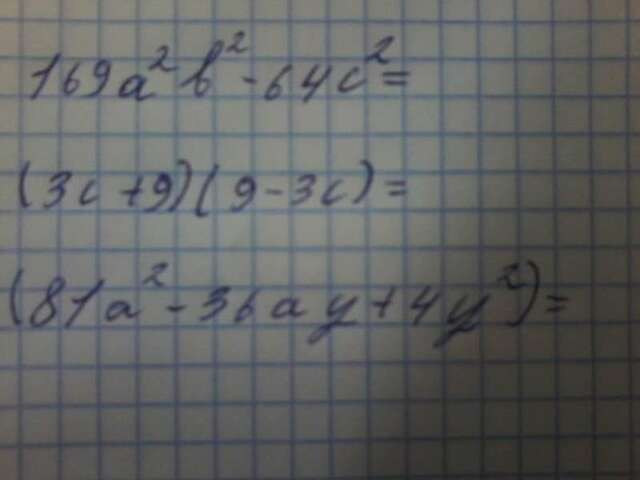 169a²b²-64c²=
(3c+9)(9-3c)=
(81a²-36ay+4y²)=